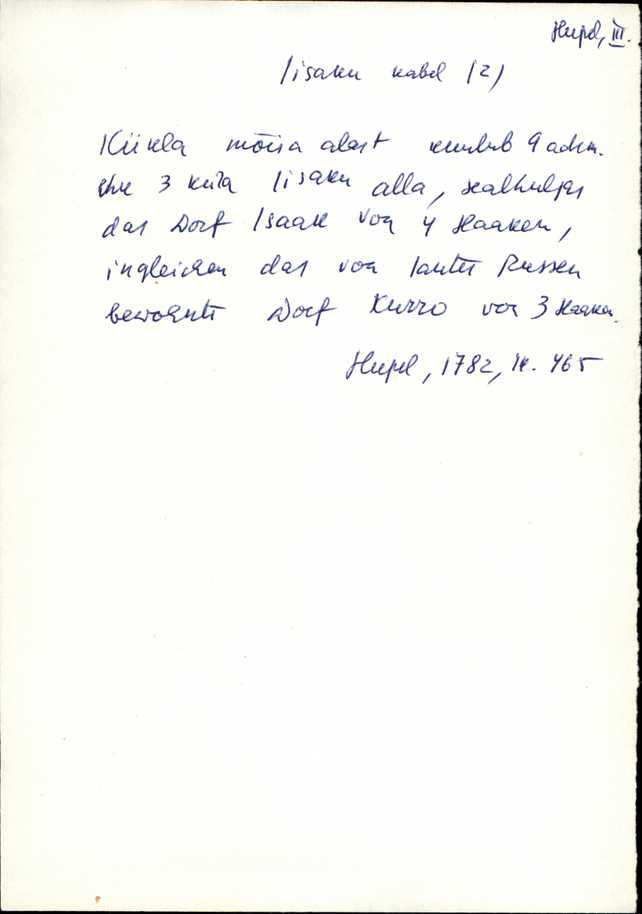 Hupel, III.
Iisaku kabel (2)
Kiikla mõisa alast kuulub 9 adra.
ehk 3 küla Iisaku alla, sealhulgas
das Dorf Isaak von 4 Haaken,
ingleichen das von lauter Russen
bewohnte Dorf Kurro von 3 Haaken.
Hupel, 1782, lk. 465